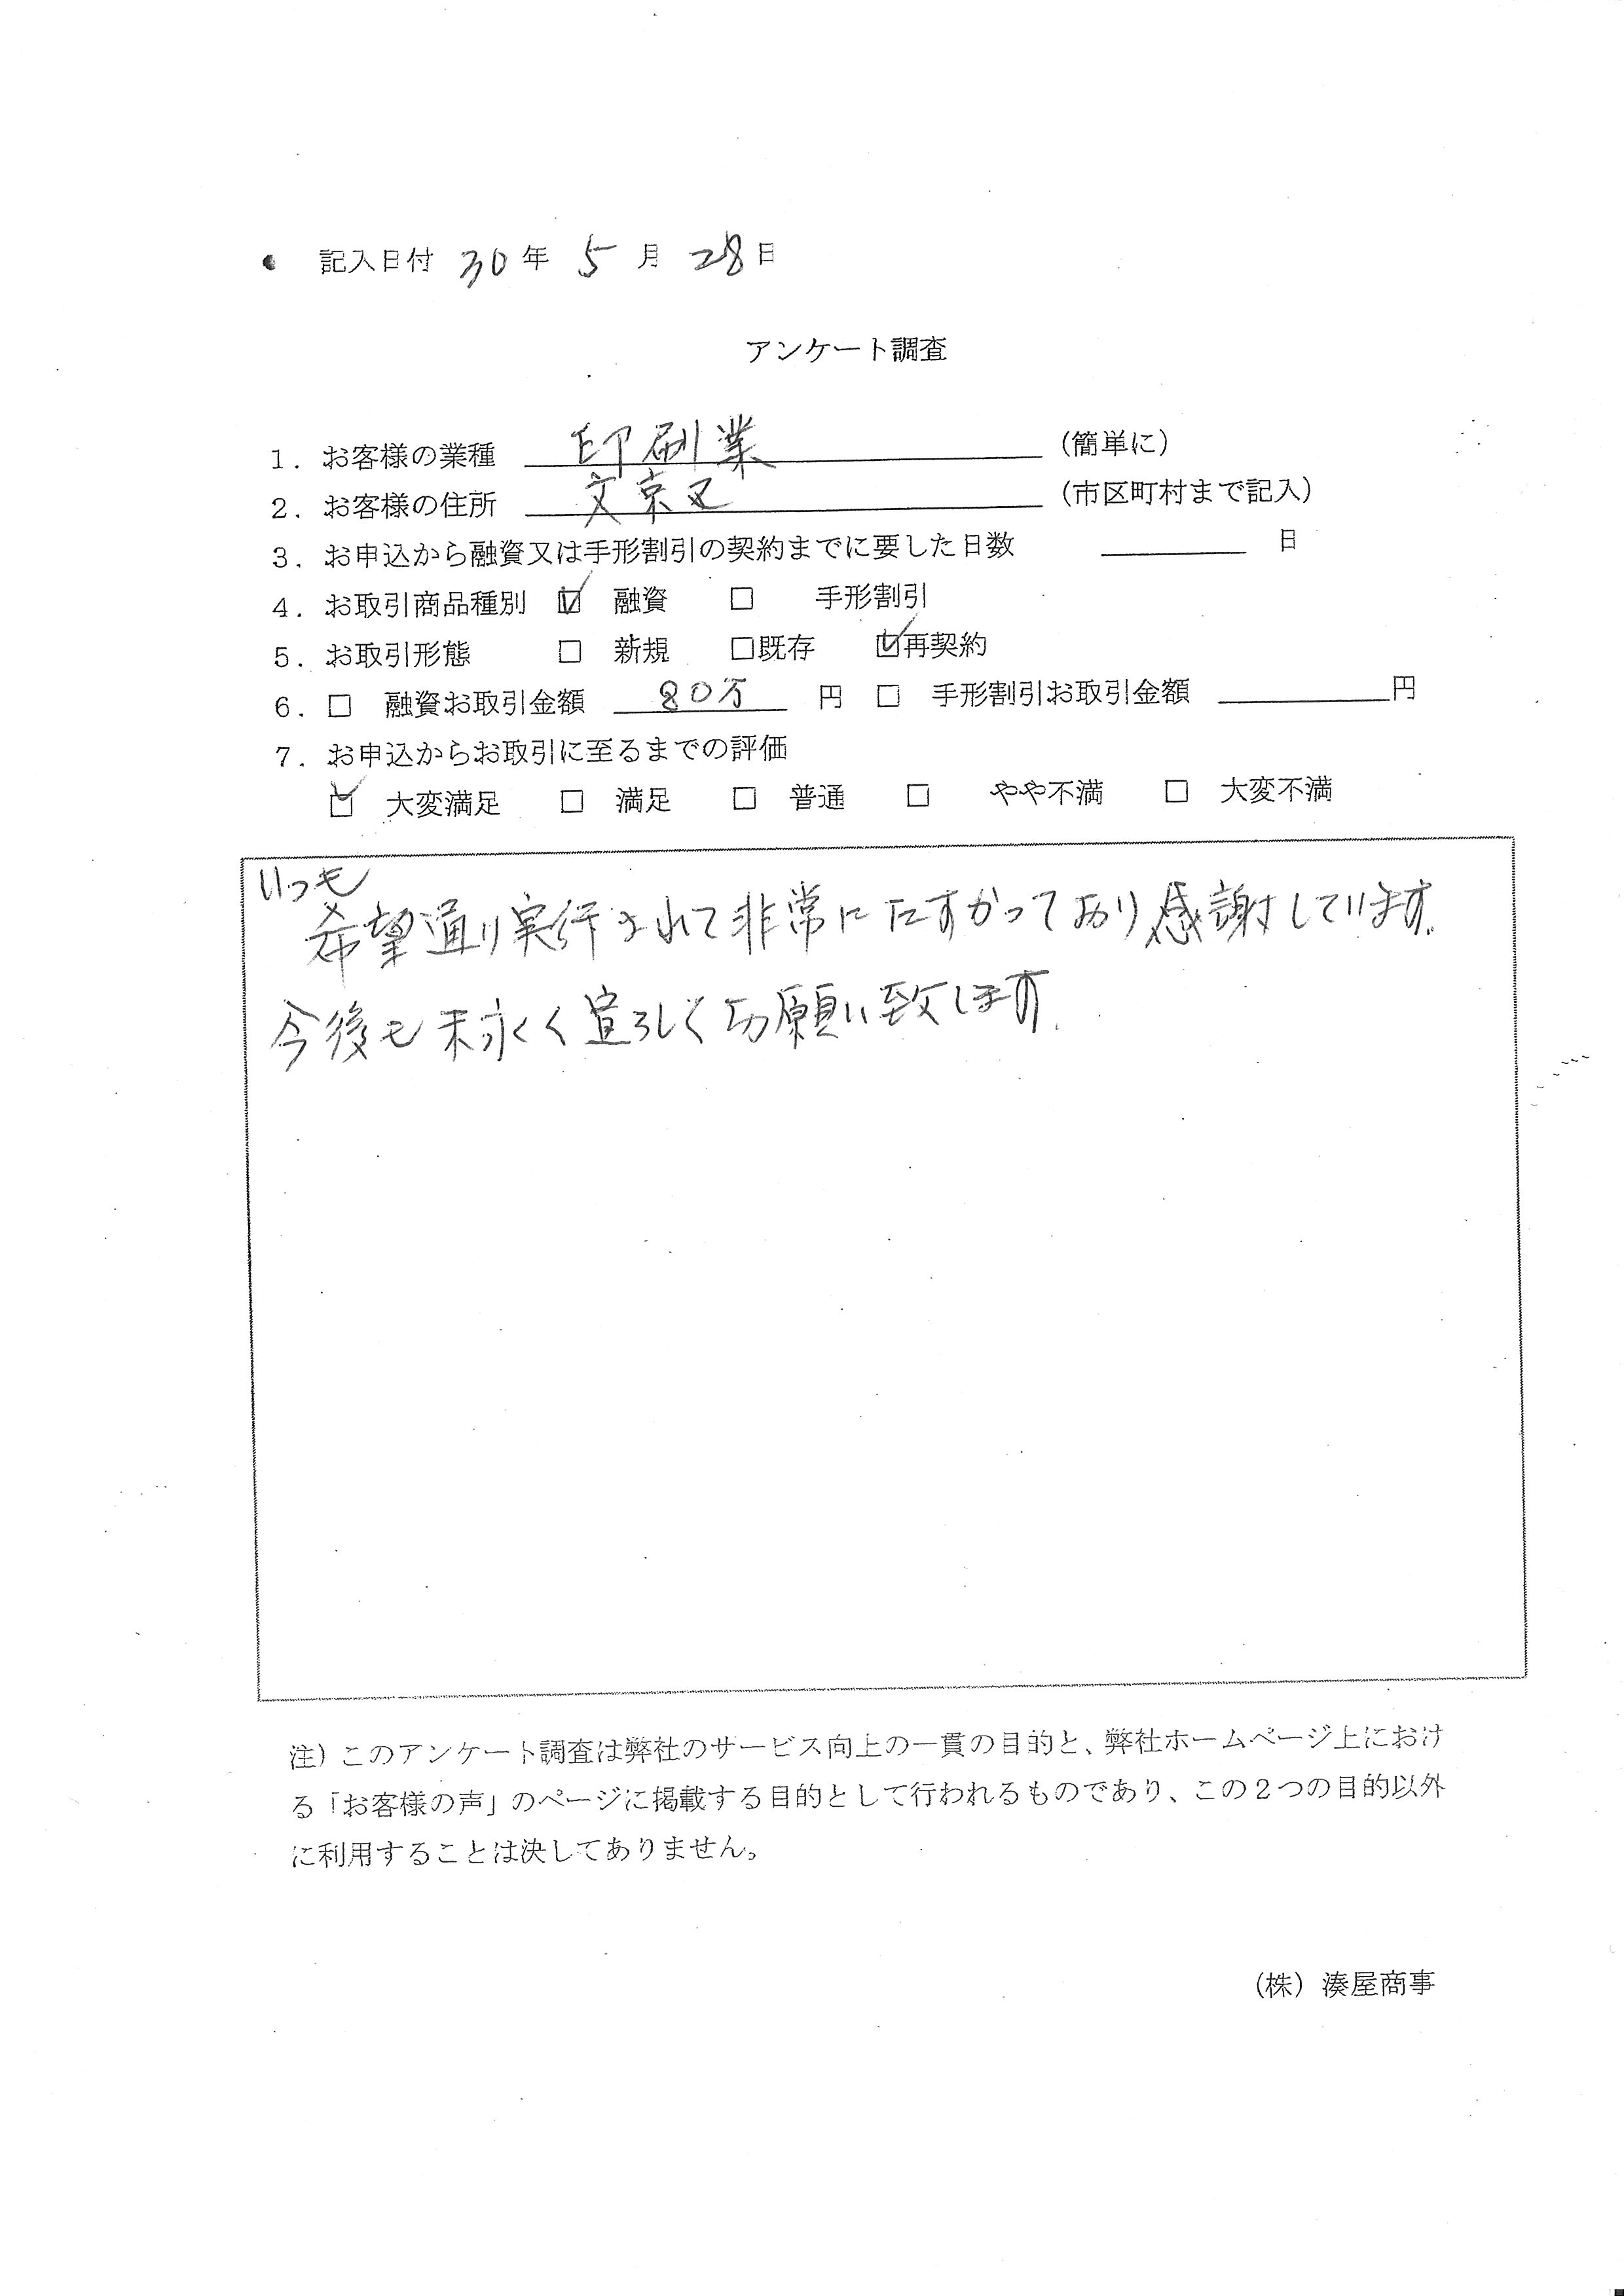 記入日付 30年 5月 28日
アンケート調査
1. お客様の業種 印刷業 (簡単に)
2. お客様の住所 文京区 (市区町村まで記入)
3. お申込から融資又は手形割引の契約までに要した日数 日
4. お取引商品種別 ☑ 融資 □ 手形割引
5. お取引形態 □ 新規 □既存 ☑再契約
6. □ 融資お取引金額 80万 円 □ 手形割引お取引金額 円
7. お申込からお取引に至るまでの評価
☑ 大変満足 □ 満足 □ 普通 □ やや不満 □ 大変不満
いつも
希望通り実行されて非常にたすかっており感謝しています。
今後も末永く宜ろしくお願い致します.
注）このアンケート調査は弊社のサービス向上の一貫の目的と、弊社ホームページ上におけ
る「お客様の声」のページに掲載する目的として行われるものであり、この２つの目的以外
に利用することは決してありません。
（株）湊屋商事